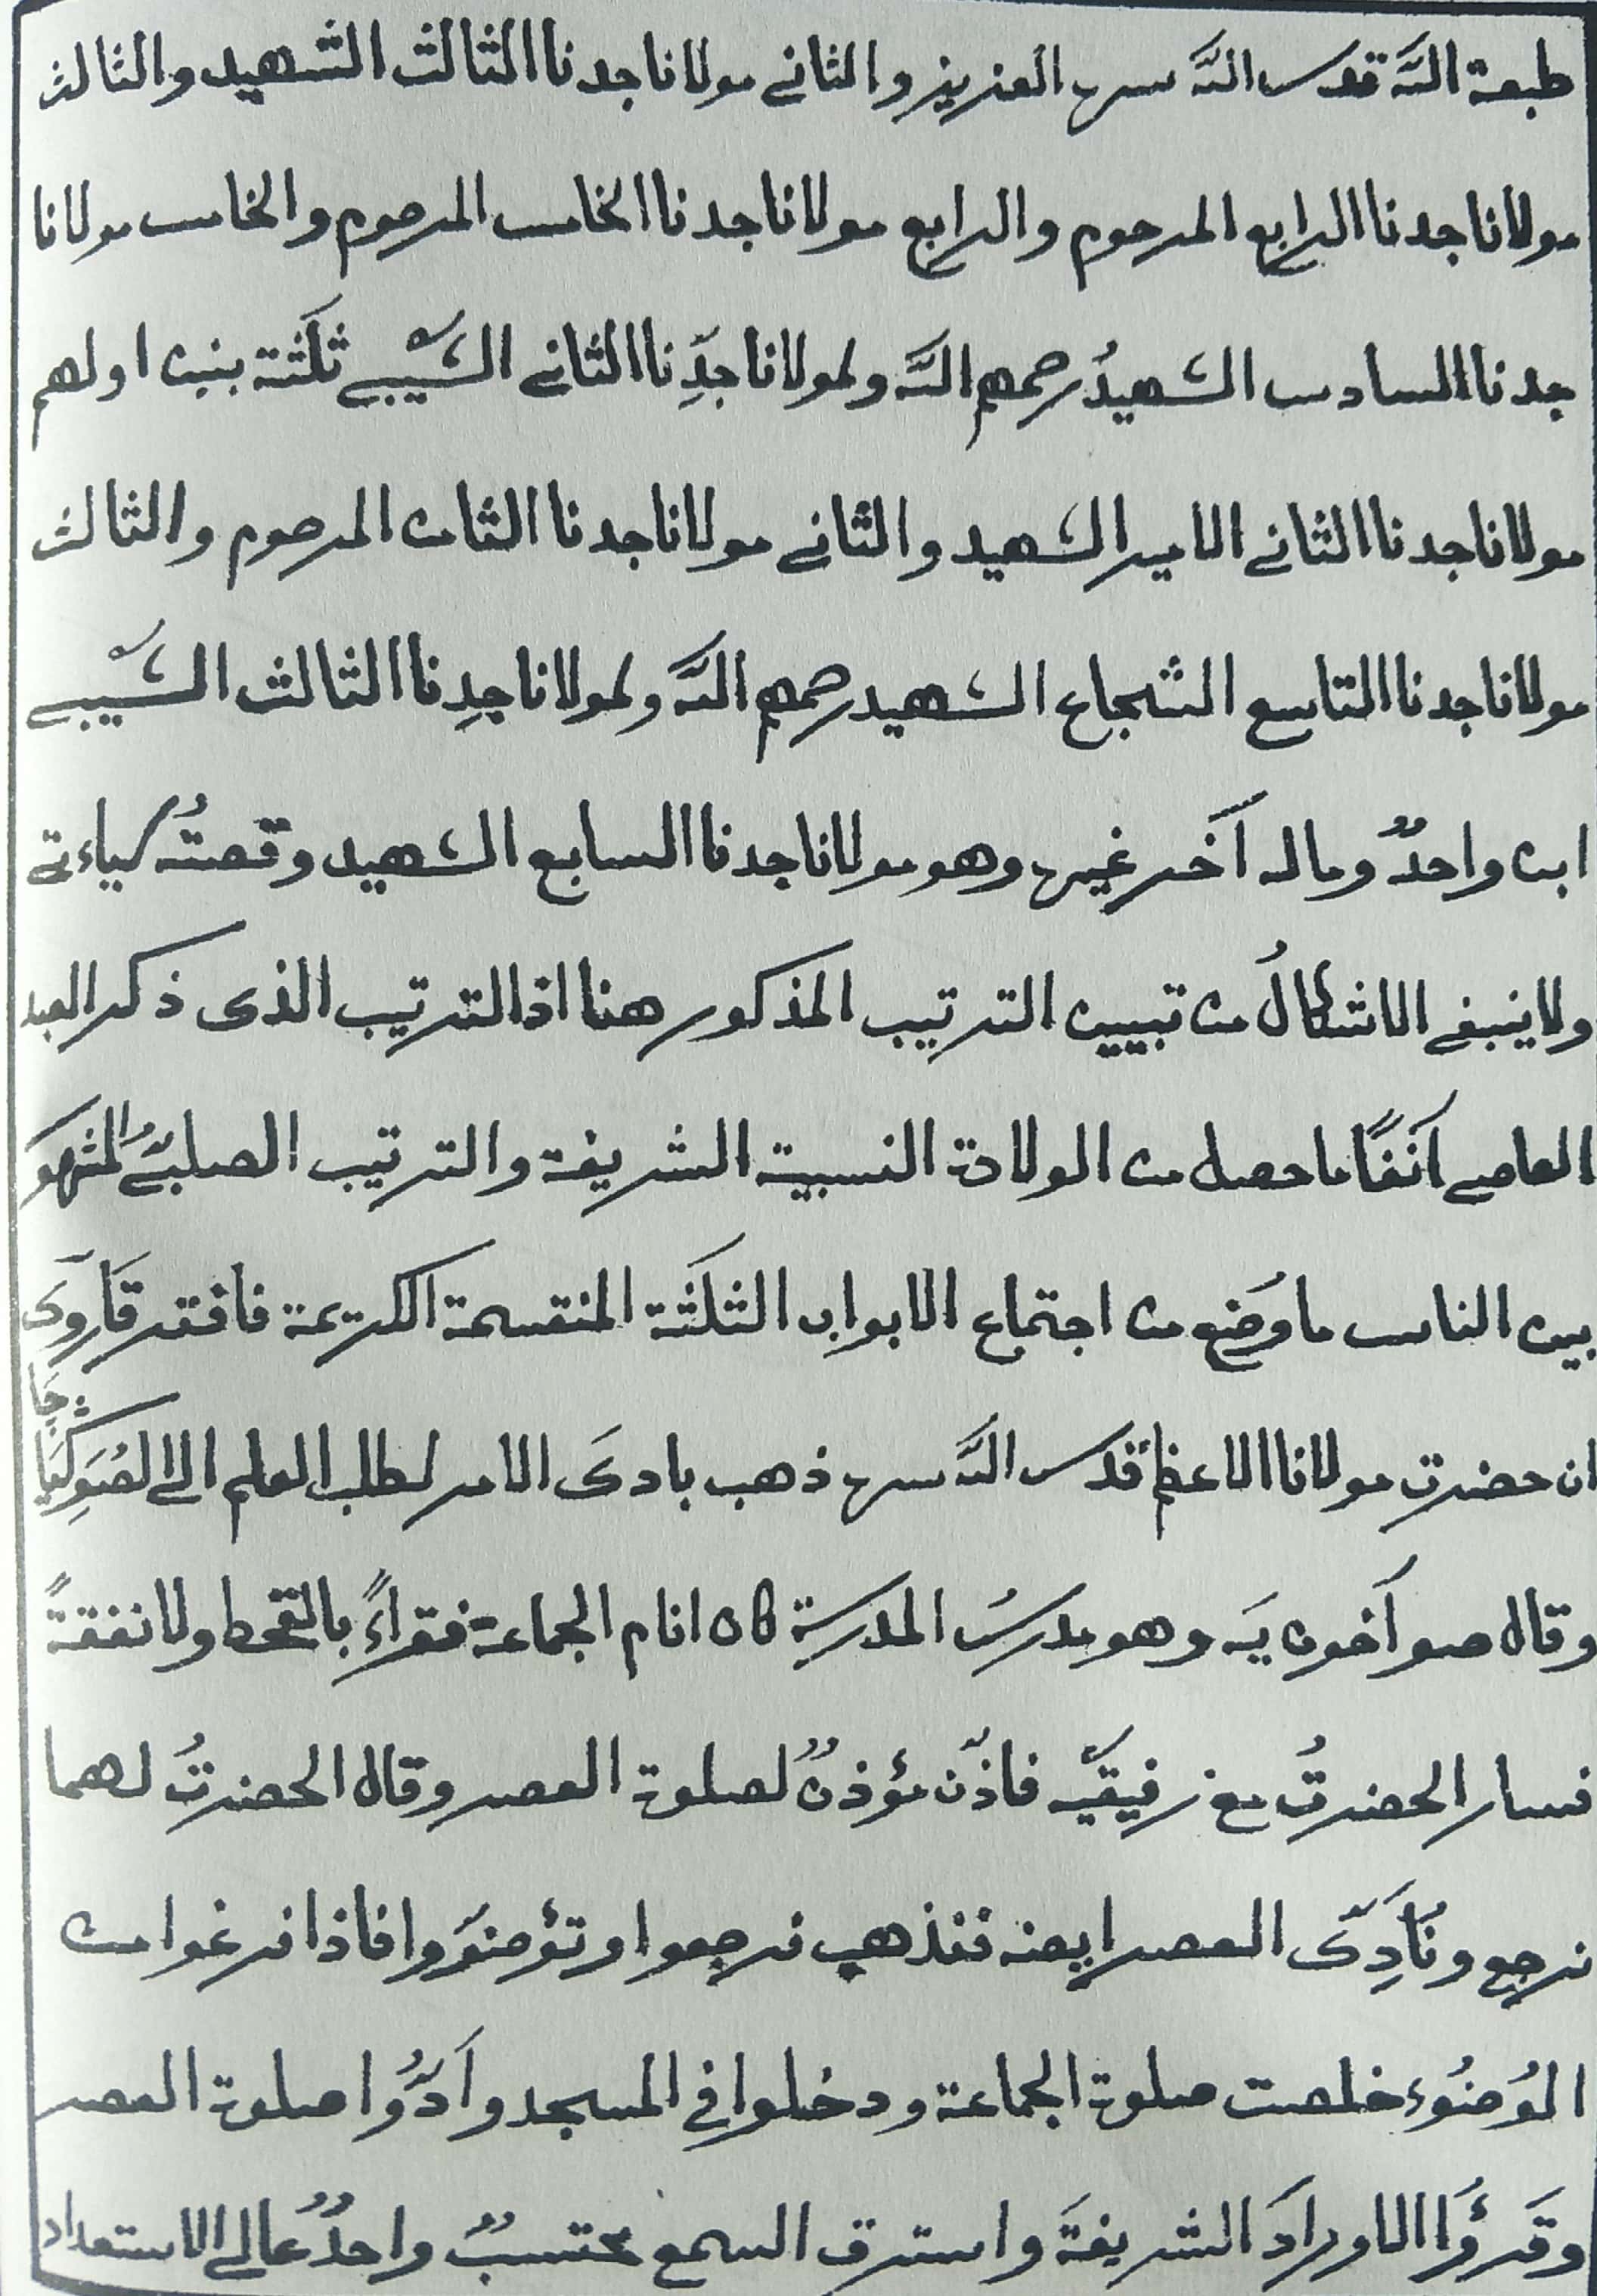 طبعة اللّه قدس اللّه سره العزيز والثانے مولانا جدنا الثالث الشهيد والثالث
مولانا جدنا الرابع المرحوم والرابع مولانا جدنا الخامس المرحوم والخامس مولانا
جدنا السادس الشهيدُ رحمهم اللّه ولمولانا جدِّنا الثانے الشَّيبے ثلٰثة بنين اولهم
مولانا جدنا الثانے الامير الشهيد والثانے مولانا جدنا الثامن المرحوم والثالث
مولانا جدنا التاسع الشجاع الشهيد رحمهم اللّه ولمولانا جدِنا الثالث الشَّيبے
ابن واحدٌ وماله آخر غيره وهو مولانا جدنا السابع الشهيد وقصتُه كياءتے
ولا ينبغے الاشكالُ من تبيين الترتيب المذكور هنا اذ الترتيب الذى ذكر العبد
العاصے آنَفًا ما حصل من الولادة النسبية الشريفة والترتيب الصلبےُّ المُشهو
بين الناس ما وَضَع من اجتماع الابواب الثلٰثة المنقسمة الكريمة فافتر قَارَوَى
ان حضرت مولانا الاعظم قدس اللّه سره ذهب بادىَ الامر لطلب العلم الے الصُوَكِيَا
وقال صو آخون يَه وهو مدرسُ المدرسة كان انام الجماعة فقراءً بالقحط ولا نفقةً
فسار الحضرتُ مع رفيقَيه فاذّن مؤذنٌ لصلوة العصر وقال الحضرتُ لهما
نرجع ونُاَدِّى العصر ايضه فنذهب فرجعوا وتؤضوَّوا فاذا فرغوا من
الوُضُوء خلصت صلوة الجماعة ودخلوا فى المسجد واَدَّوُا صلوة العصر
وقَرؤَا الاورادَ الشريفةَ واسترق السمع محتسبٌ واحدٌ عالے الاستعداد